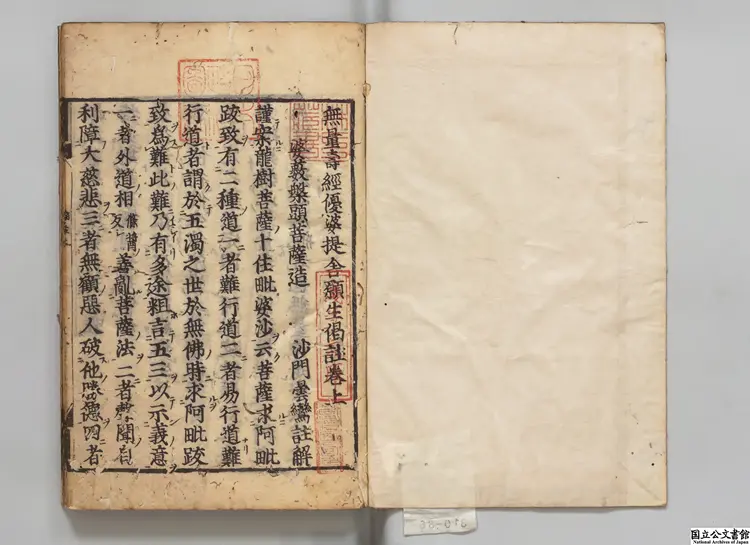 無量壽經優婆提舎願生偈註巻上
婆藪槃頭菩薩造 沙門曇鸞註解
謹案龍樹菩薩十住毗婆沙云菩薩求阿毗
跋致有二種道一者難行道二者易行道難
行道者謂於五濁之世於無佛時求阿毗跋
致爲難此難乃有多途粗言五三以示義意
一者外道相 善亂菩薩法二者聲聞自
利障大慈悲三者無顧惡人破他勝德四者
国立公文書館
National Archives of Japan